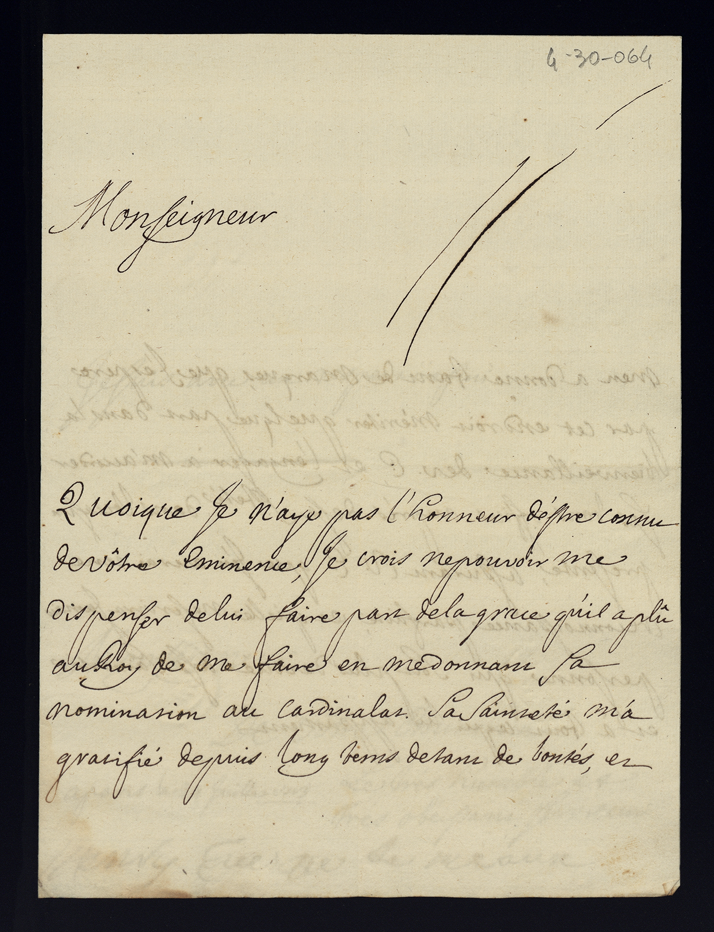 4-30-064
Monseigneur
Quoique Je n'aye pas l'honneur d'éstre connu
de vôtre Eminence, Je crois ne pouvoir me
dispenser de lui faire part de la grace qu'il a plû
au Roy de me faire en me donnant Sa
nomination au Cardinalat. Sa Sainteté m'a
gratifié depuis long tems de tant de bontés, et